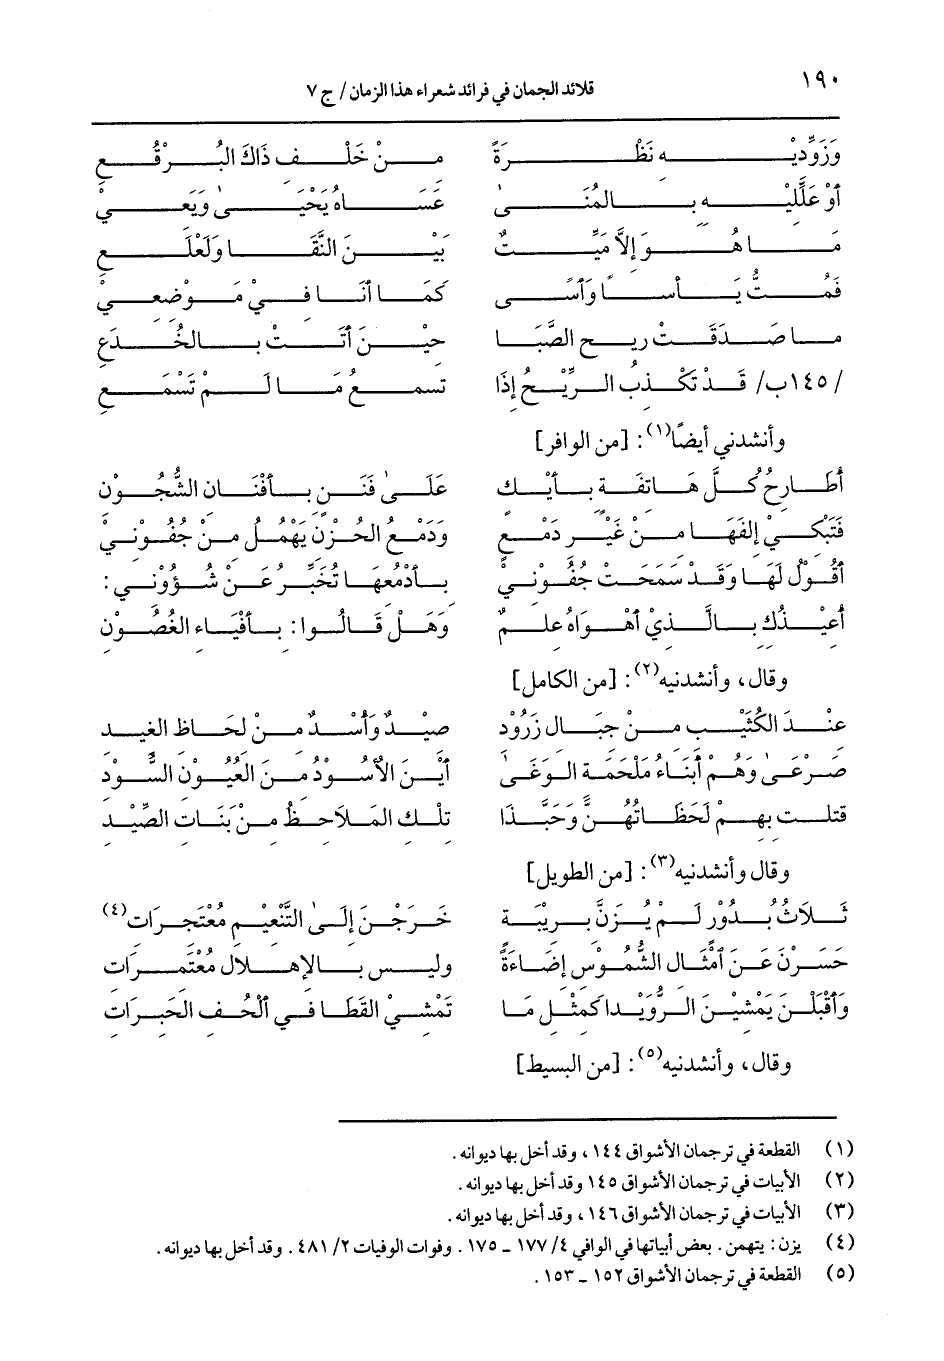 ١٩٠
قلائد الجمان في فرائد شعراء هذا الزمان/ ج ٧
وَزَوِّدِيْهِ نَظْرَةً مِنْ خَلْفِ ذَاكَ البُرْقُعِ
أوْ عَلِّلِيْهِ بِالمُنَىٰ عَسَاهُ يَحْيَىٰ وَيَعِيْ
مَا هُوَ إلاَّ مَيِّتٌ بَيْنَ النَّقَا وَلَعْلَعِ
فَمُتُّ يَأساً وَأسًى كَمَا أنَا فِيْ مَوْضِعِيْ
مَا صَدَقَتْ رِيحُ الصَّبَا حِيْنَ أتَتْ بِالخُدَعِ
/١٤٥ب/ قَدْ تَكْذِبُ الرِّيْحُ إذَا تسمعُ مَا لَمْ تَسْمَعِ
وأنشدني أيضًا(١): [من الوافر]
أطَارِحُ كُلَّ هَاتِفَةٍ بِأَيْكٍ عَلَىٰ فَنَنٍ بِأفْنَانِ الشُّجُوْنِ
فَتَبْكِيْ إلفَهَا مِنْ غَيْرِ دَمْعٍ وَدَمْعُ الحُزْنِ يَهْمُلُ مِنْ جُفُوْنِيْ
أقُوْلُ لَهَا وَقَدْ سَمَحَتْ جُفُوْنِيْ بِأدْمُعِهَا تُخَبِّرُ عَنْ شُؤُوْنِي:
أعِنْدَكِ بِالَّذِيْ أهْوَاهُ عِلمٌ وَهَلْ قَالُوا: بِأفْيَاءِ الغُصُوْنِ
وقال، وأنشدنيه(٢): [من الكامل]
عِنْدَ الكَثِيْبِ مِنْ جِبَالِ زَرُوْدِ صِيْدٌ وَأُسْدٌ مِنْ لِحَاظِ الغِيدِ
صَرْعَىٰ وَهُمْ أبْنَاءُ مَلْحَمَةِ الوَغَىٰ أيْنَ الأُسُوْدُ مِنَ العُيُوْنِ السُّوْدِ
قتلت بِهِمْ لَحَظَاتُهُنَّ وَحَبَّذَا تلك المَلاَحِظُ مِنْ بَنَاتِ الصِّيْدِ
وقال وأنشدنيه(٣): [من الطويل]
ثَلاَثُ بُدُوْرٍ لَمْ يُزَنَّ بِرِيْبَةٍ خَرَجْنَ إلَىٰ التَّنْعِيْمِ مُعْتَجِرَاتِ(٤)
حَسَرْنَ عَنْ أمْثَالِ الشُّمُوْسِ إضَاءَةً وليس بِالإهْلالِ مُعْتَمِرَاتِ
وَأقْبَلْنَ يَمْشِيْنَ الرُّوَيْدا كَمِثْلِ مَا تَمْشِيْ القَطَا فِي ألْحُفِ الحِبَرَاتِ
وقال، وأنشدنيه(٥): [من البسيط]
(١) القطعة في ترجمان الأشواق ١٤٤، وقد أخل بها ديوانه.
(٢) الأبيات في ترجمان الأشواق ١٤٥ وقد أخل بها ديوانه.
(٣) الأبيات في ترجمان الأشواق ١٤٦، وقد أخل بها ديوانه.
(٤) يزن: يتهمن. بعض أبياتها في الوافي ٤/ ١٧٧ ـ ١٧٥. وفوات الوفيات ٢/ ٤٨١. وقد أخل بها ديوانه.
(٥) القطعة في ترجمان الأشواق ١٥٢ ـ ١٥٣.